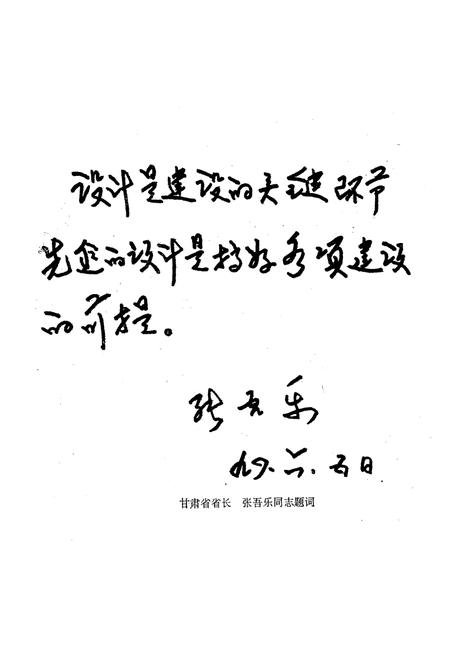 设计是建设的关键环节
先进的设计是搞好各项建设
的前提。
张吾乐
九四.六.五日
甘肃省省长 张吾乐同志题词